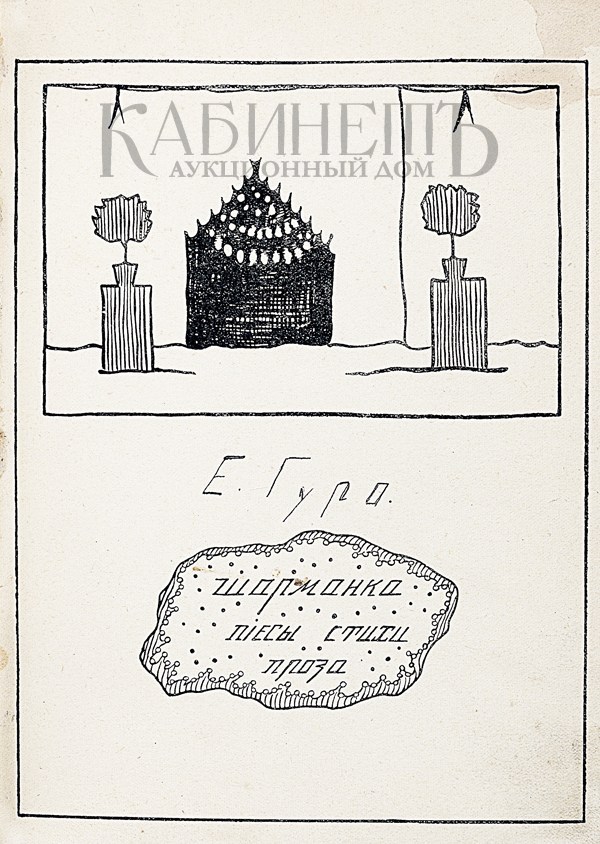 КАБИНЕТЪ
АУКЦИОННЫЙ ДОМ
Е. Гуро.
шарманка
пiесы стихи
проза